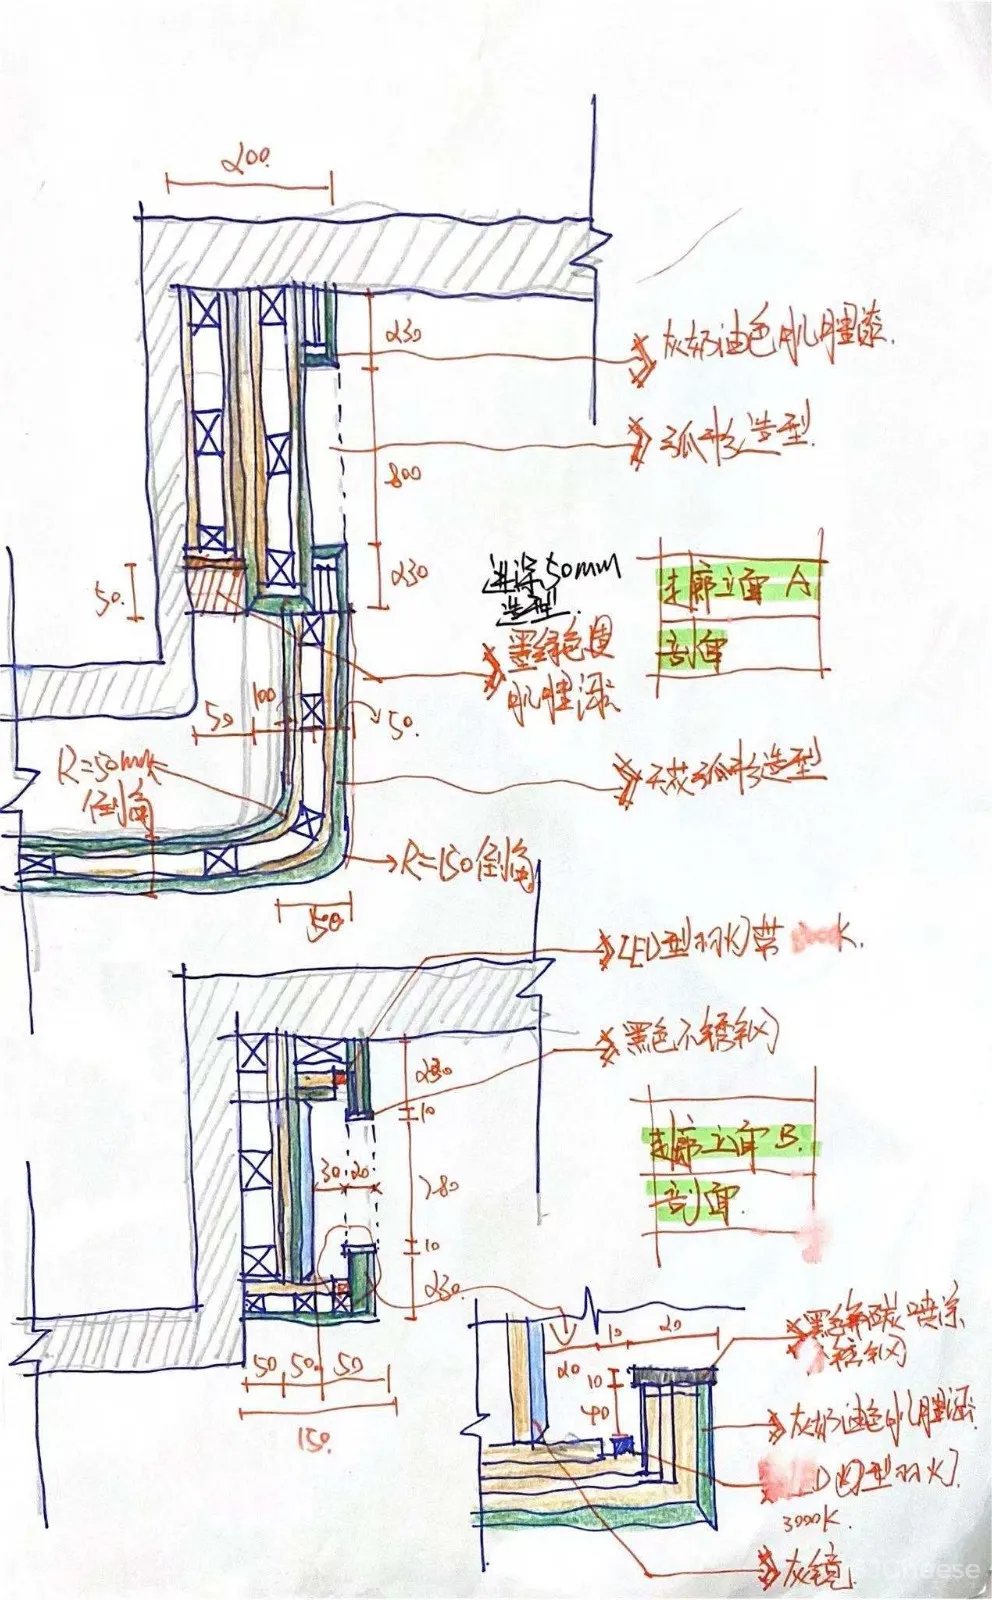 200.
230
灰奶油色肌肤漆.
弧形造型.
800
进深50mm
造型.
走廊立面 A
剖面
230
50.
墨绿色
肌肤漆
100
50
50.
R=50mm
倒角
天花弧形造型
R=150倒角
50.
LED型材灯带 K.
黑色不锈钢
230
10
走廊立面 B.
剖面.
30 20
780
10
230.
黑色氟碳喷涂
不锈钢
10 20
20
10
40
50 50. 50
150.
灰奶油色肌肤漆.
D 型材灯.
3000K.
灰镜.
Cheese